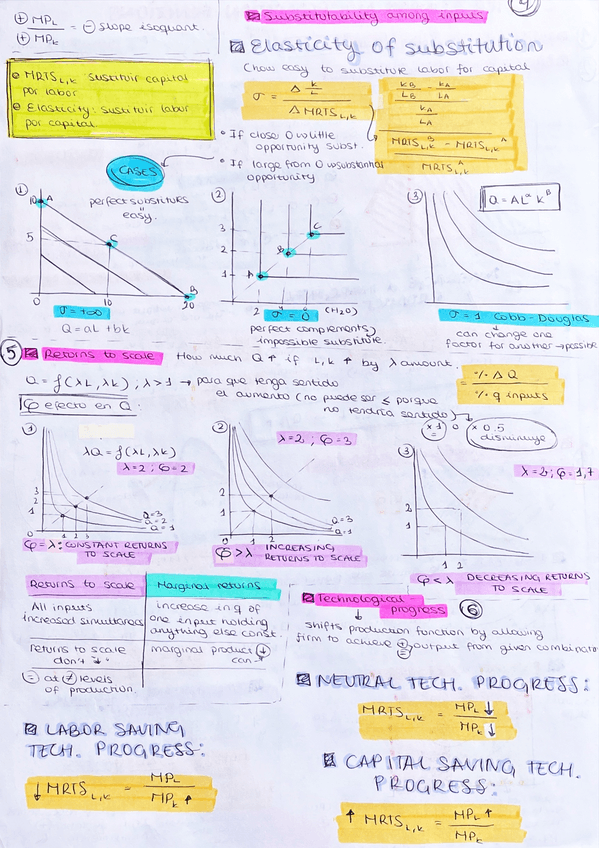 ④
(+) MPL / (+) MPK = (-) slope isoquant.
Substitutability among inputs
Elasticity of substitution
(how easy to substitute labor for capital
MRTS L,K sustituir capital
por labor
Elasticity: sustituir labor
por capital
σ = Δ K/L / Δ MRTS L,K
KB/LB - KA/LA
KA/LA
MRTS B L,K - MRTS A L,K
MRTS A L,K
• If close 0 → little
opportunity subst.
• If large from 0 → substantial
oppoitunity
CASES
①
perfect substitutes
easy.
10 A
5
C
B
0 10 20
σ = +∞
Q = aL + bK
②
3
2
1
A B C
2 4 6 (H2O)
σ = 0
perfect complements,
impossible substitute.
③
Q = AL^α K^β
σ = 1 Cobb-Douglas
can change one
factor for another → possible
⑤ Returns to scale How much Q ↑ if L, K ↑ by λ amount.
Q = f(λL, λK), λ > 1 → para que tenga sentido
el aumento (no puede ser ≤ porque
no tendría sentido)
φ efecto en Q.
% Δ Q / % q inputs
× 1 =
o
× 0.5
disminuye
①
λQ = f(λL, λK)
λ=2; φ=2
3
2
1
0 1 2 3
Q=3
Q=2
Q=1
φ = λ: CONSTANT RETURNS
TO SCALE
②
λ=2; φ=3
2
1
0 1 2
Q=3
Q=1
φ > λ INCREASING
RETURNS TO SCALE
③
λ=2; φ=1,7
2
1
1 2
φ < λ DECREASING RETURNS
TO SCALE
Returns to scale Marginal returns
All inputs
increased simultaneous
increase in q of
one input holding
anything else const.
returns to scale
don't ↓
marginal product ↓
can
(=) at ≠ levels
of production.
Technological
progress ⑥
shifts production function by allowing
firm to achieve (+) (=) output from given combinatio
NEUTRAL TECH. PROGRESS:
MRTS L,K = MPL ↓ / MPK ↓
LABOR SAVING
TECH. PROGRESS:
↓ MRTS L,K = MPL / MPK ↑
CAPITAL SAVING TECH.
PROGRESS:
↑ MRTS L,K = MPL ↑ / MPK